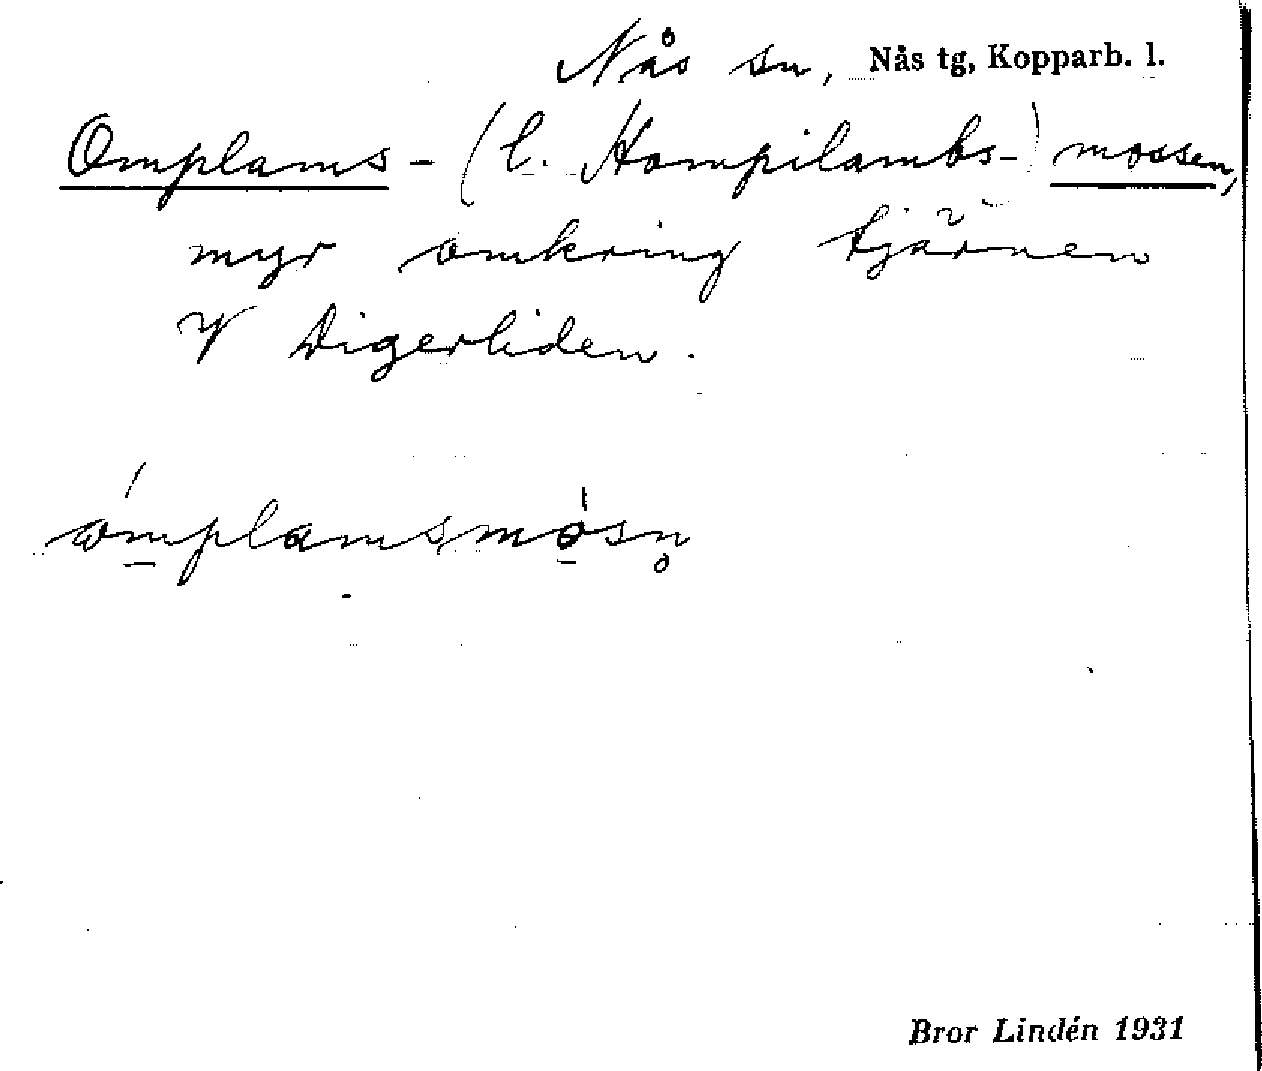 Nås sn, Nås tg, Kopparb. l.
Omplams- (l. Hompilambs-) mossen,
myr omkring tjärnen
V Digerliden.
ómplamsmösn̥
Bror Lindén 1931